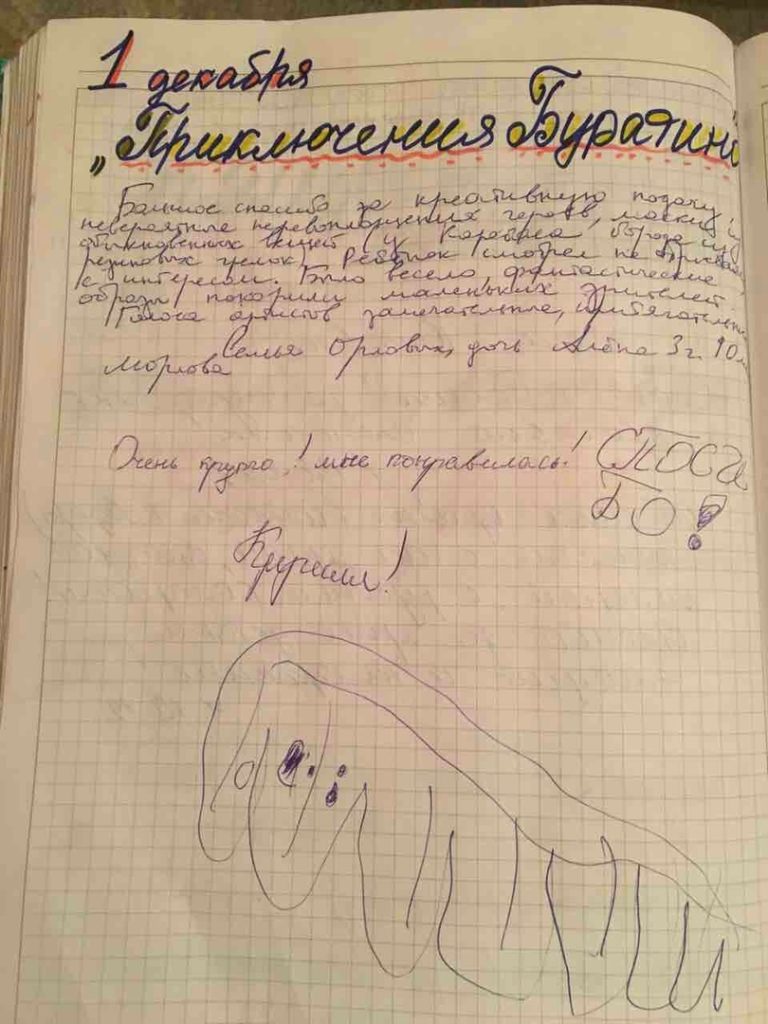 1 декабря
"Приключения Буратин
Большое спасибо за креативную подачу,
невероятные перевоплощения героев, маски из
обыкновенных вещей (у Карабаса борода из
резиновых грелок). Ребёнок смотрел не
с интересом. Было весело, фантастические
образы покорили маленьких зрителей.
Голоса артистов замечательные,
Семья Орловых, дочь Алёна 3 г. 10 м
Морлова
Очень круто! мне понравилась! СПОСИ
БО!